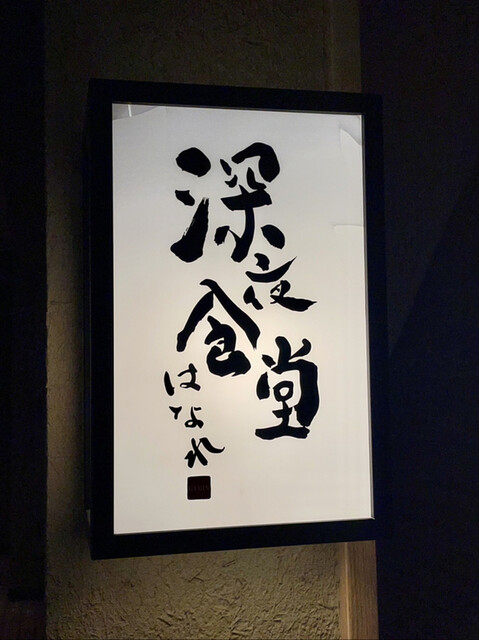 深夜食堂
はなれ